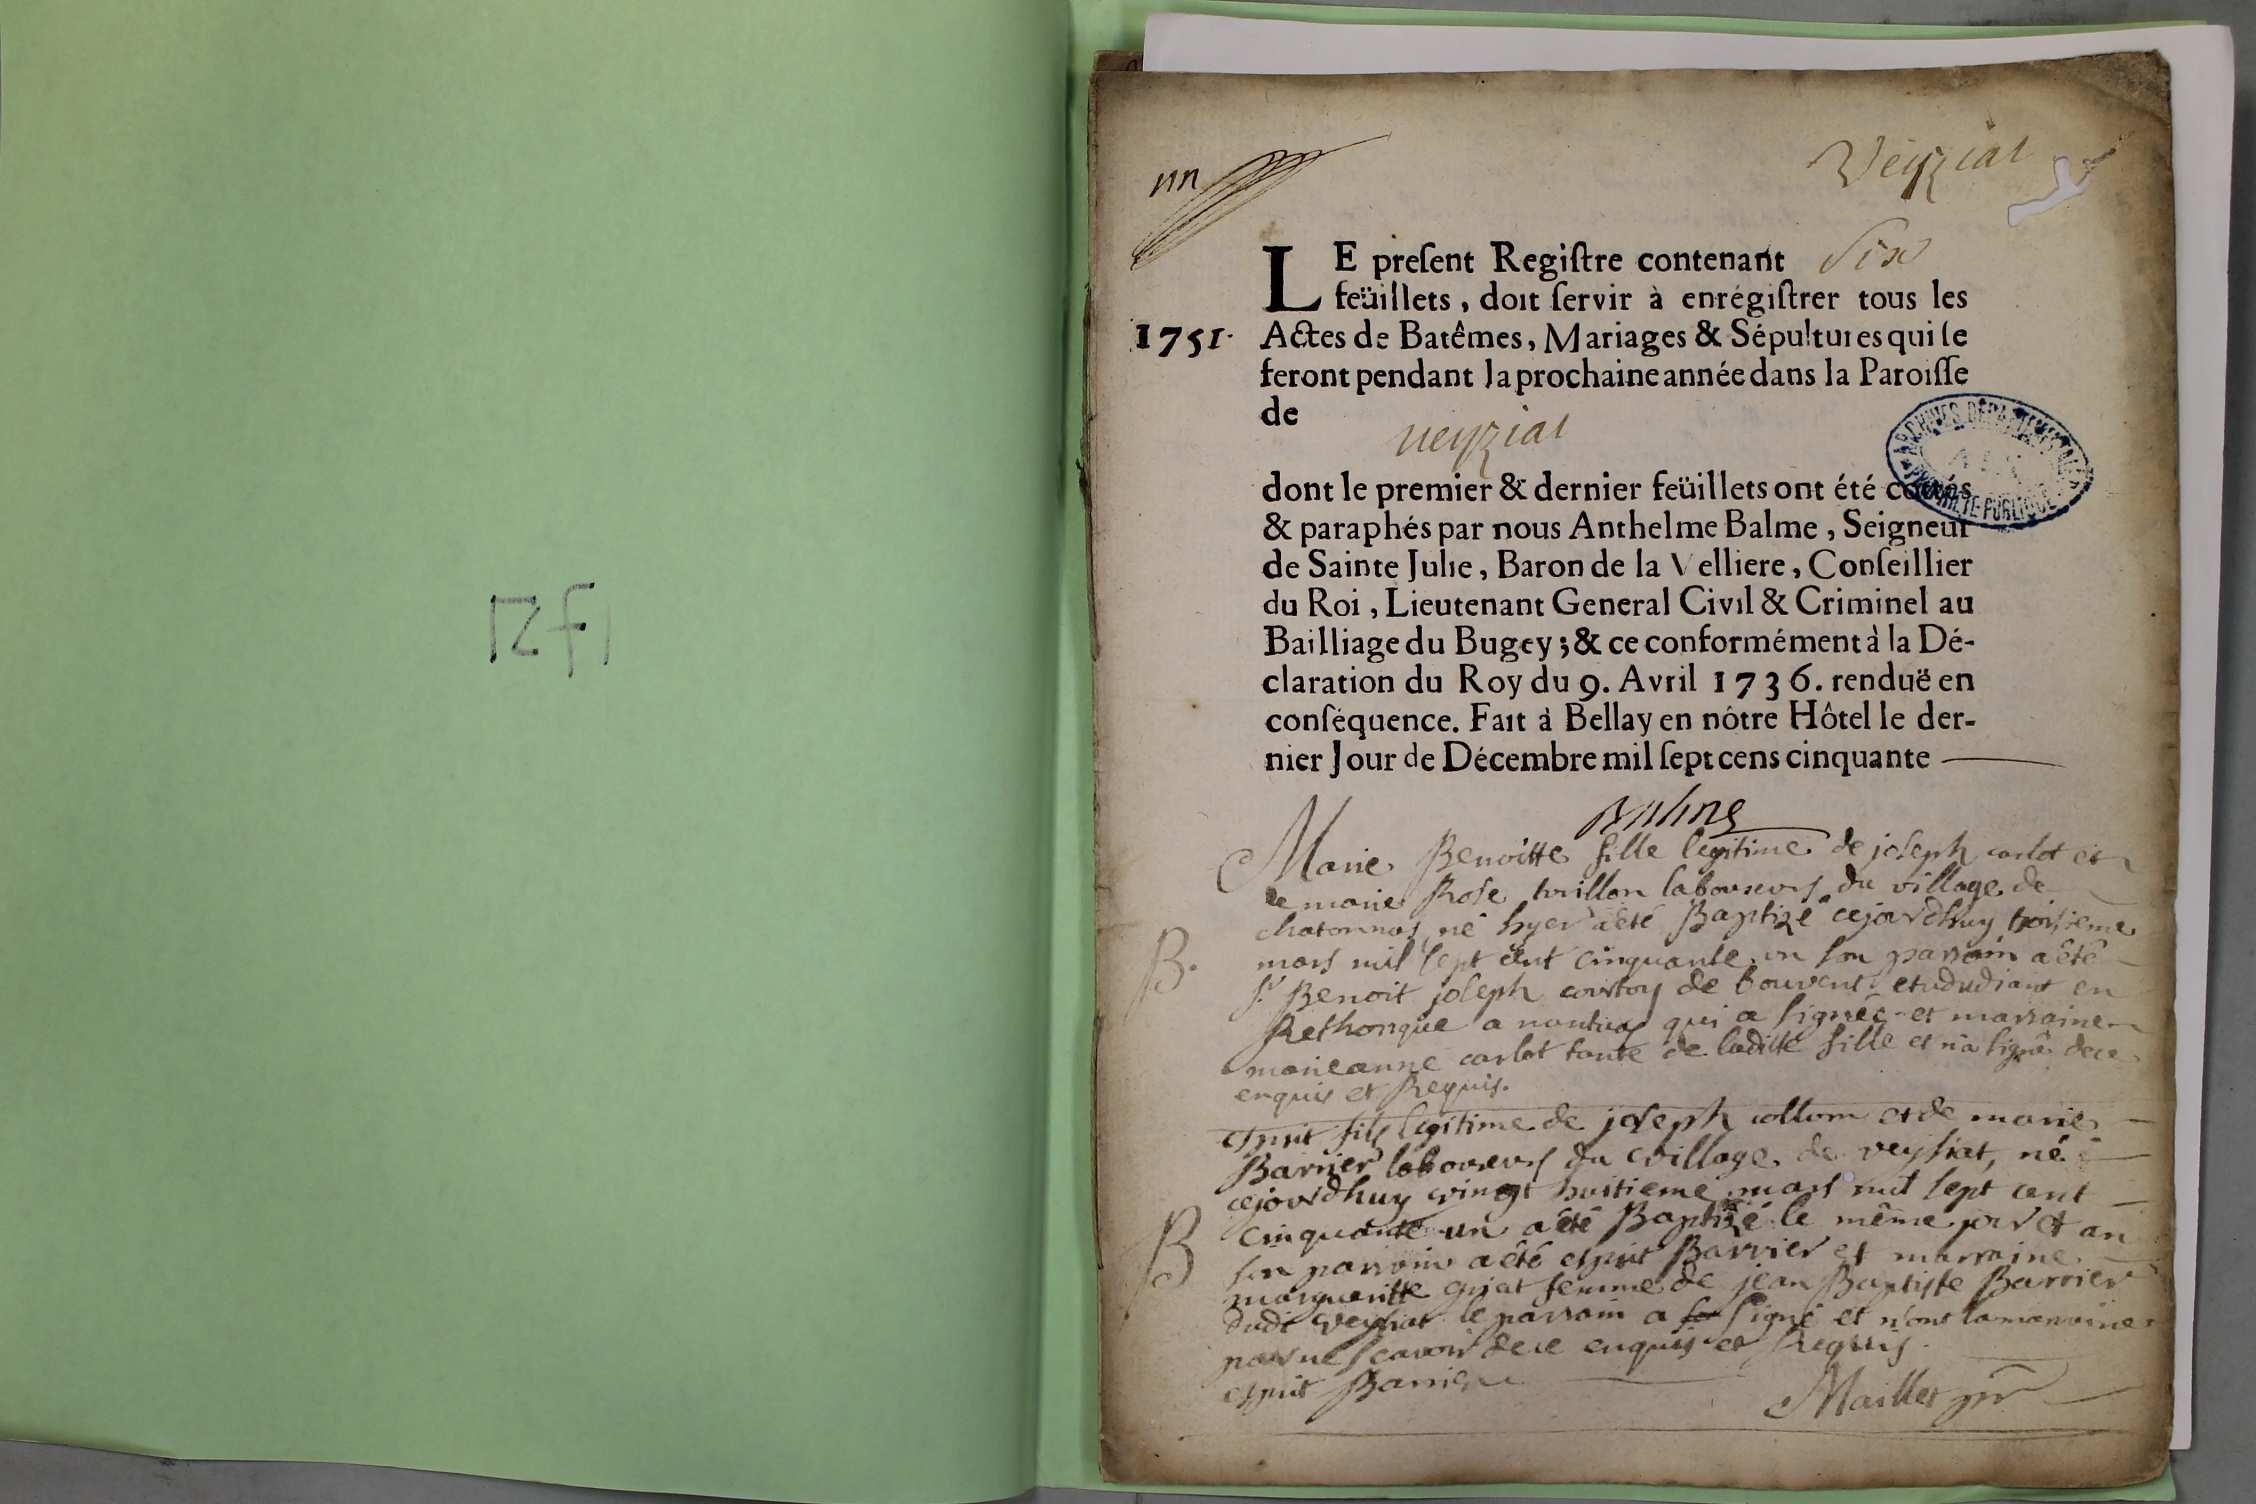 1251
un
Veyziat
LE preſent Regiſtre contenant Six
feüillets, doit ſervir à enrégiſtrer tous les
1751. Actes de Batêmes, Mariages & Sépultures qui ſe
feront pendant la prochaine année dans la Paroiſſe
de
veyziat
ARCHIVES DÉPARTEMENTALES
AIN
PROPRIÉTÉ PUBLIQUE
dont le premier & dernier feüillets ont été cottés
& paraphés par nous Anthelme Balme, Seigneur
de Sainte Julie, Baron de la Velliere, Conſeillier
du Roi, Lieutenant General Civil & Criminel au
Bailliage du Bugey; & ce conformément à la Dé-
claration du Roy du 9. Avril 1736. renduë en
conſéquence. Fait à Bellay en nôtre Hôtel le der-
nier Jour de Décembre mil ſept cens cinquante
Balme
Marie Benoitte fille legitime de joseph carlot et
de marie Rose laboureurs du village de
chatonnas né hyer a été Baptizé cejourdhuy troisieme
B. mars mil sept cent cinquante un son parrain a été
sr Benoit joseph courtoy de bouvent etududiant en
Rethorique a nantua qui a signéé et marraine
marieanne carlot tante de laditte fille et n'a signé de ce
enquis et Requis.
esprit fils legitime de joseph collom et de marie
Barrier laboureurs du village de veysiat, né
cejourdhuy vingt huitieme mars mil sept cent
B cinquante un a été Baptizé le même jour et an
son parrain a été esprit Barrier et marraine
margueritte gojat femme de jean Baptiste Barrier
dudt veysiat le parrain a signé et non la marraine
pour ne scavoir de ce enquis et Requis.
esprit Barrier
Maillet